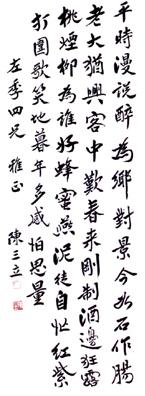 平時漫說醉為鄉對景今如石作腸
老大猶興客中歎春來剛制酒邊狂露
桃煙柳為誰好蜂蜜燕泥徒自忙紅紫
打圍歌笑地暮年多感怕思量
左季四兄 雅正 陳三立